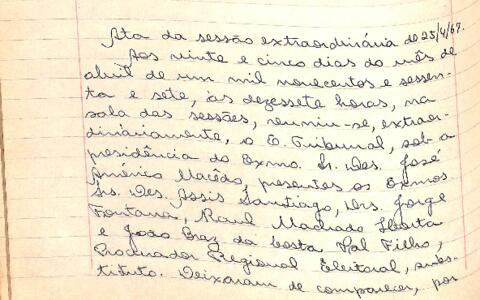 Ata da sessão extraordinária de 25/4/67.
Aos vinte e cinco dias do mês de
abril de um mil novecentos e sessen-
ta e sete, às dezessete horas, na
sala das sessões, reuniu-se, extraor-
dinàriamente, o E. Tribunal, sob a
presidência do Exmo. Sr. Des. José
Américo Macêdo, presentes os Exmos.
Srs. Des. Assis Santiago, Drs. Jorge
Fontana, Raul Machado Horta
e João Braz da Costa Val Filho,
Procurador Regional Eleitoral, subs-
tituto. Deixaram de comparecer, por